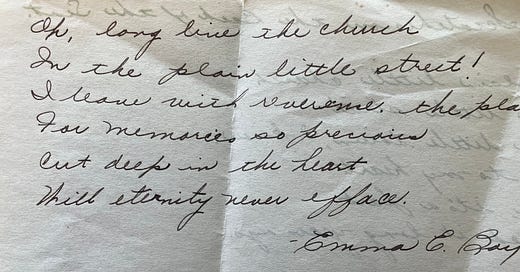 Oh, long live the church
In the plain little street!
I leave with reverence. the pla
For memories so precious
Cut deep in the heart
Will eternity never efface.
-Emma E. Bay